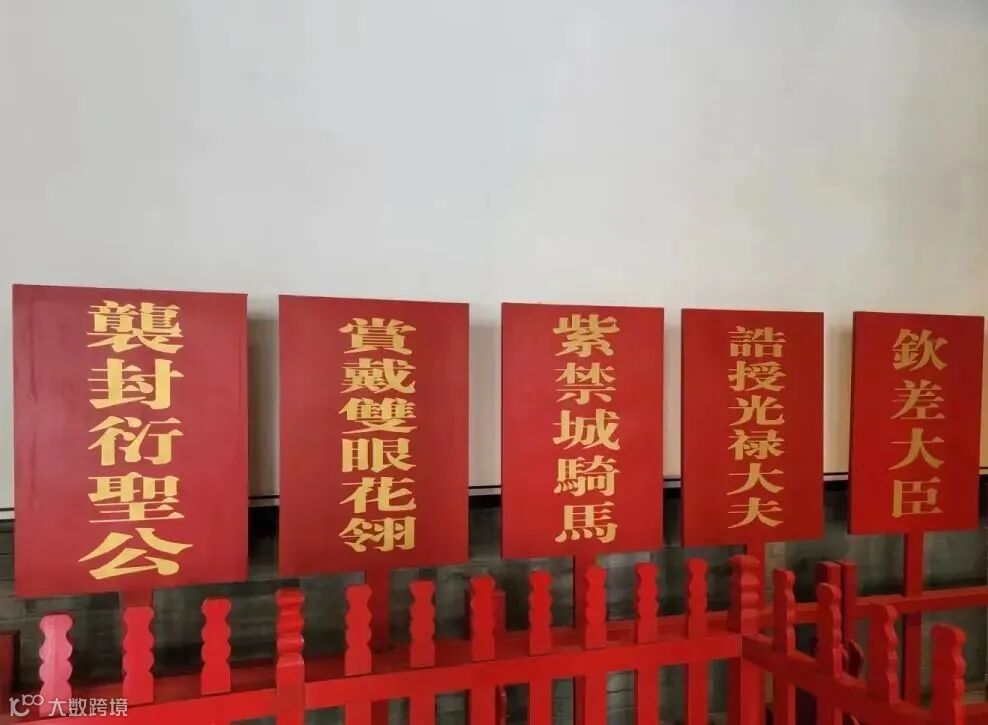 襲封衍聖公
賞戴雙眼花翎
紫禁城騎馬
誥授光禄大夫
欽差大臣
大数跨境